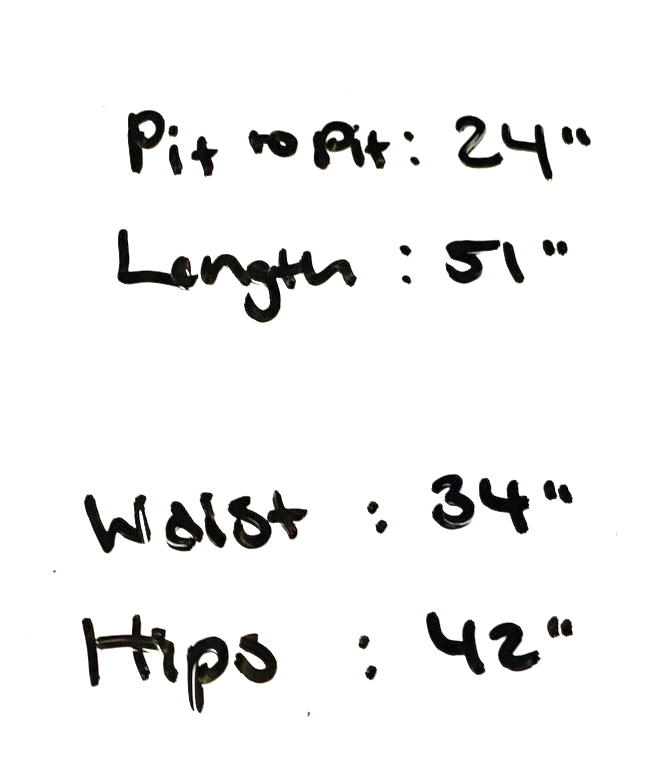 Pit to Pit: 24"
Length : 51"
Waist : 34"
Hips : 42"